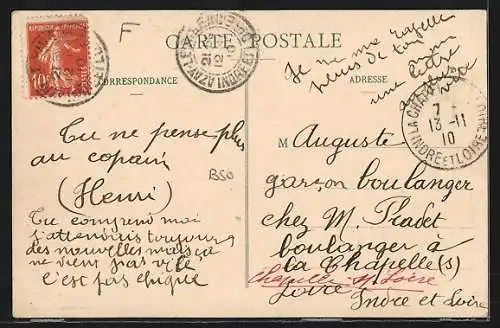 F
CARTE POSTALE
CORRESPONDANCE
ADRESSE
Je ne me rapelle
plus de ton
nom
une lettre
Tu ne pense plus
au copain
(Henri)
B50
Tu comprend moi
j'attendais toujours
des nouvelles mais ça
ne vient pas vite
c'est pas chique
M Auguste
garçon boulanger
chez M. Pradet
boulanger à
la Chapelle (s)
Chapelle s/ Loire
Loire
Indre et Loire
10c
LA CHAPELLE
7
13-11
10
INDRE ET LOIRE
AZAY-LE-RIDEAU
INDRE ET LOIRE